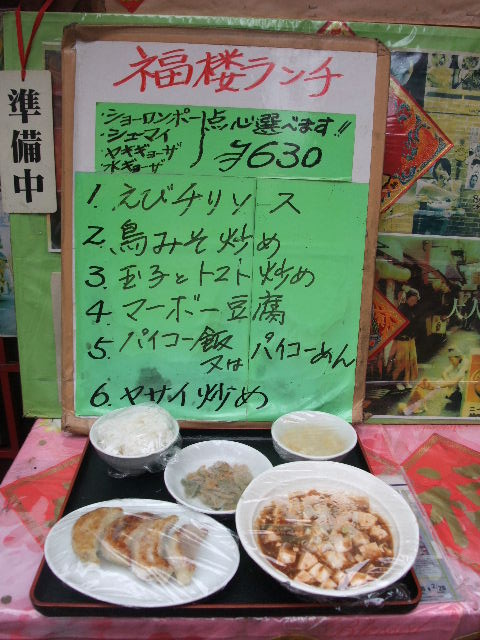 準備中
福楼ランチ
・ショーロンポー
・シューマイ
・ヤキギョーザ
・水ギョーザ
点心選べます!!
¥630
1. えびチリソース
2. 鳥みそ炒め
3. 玉子とトマト炒め
4. マーボー豆腐
5. パイコー飯
又はパイコーめん
6. ヤサイ炒め